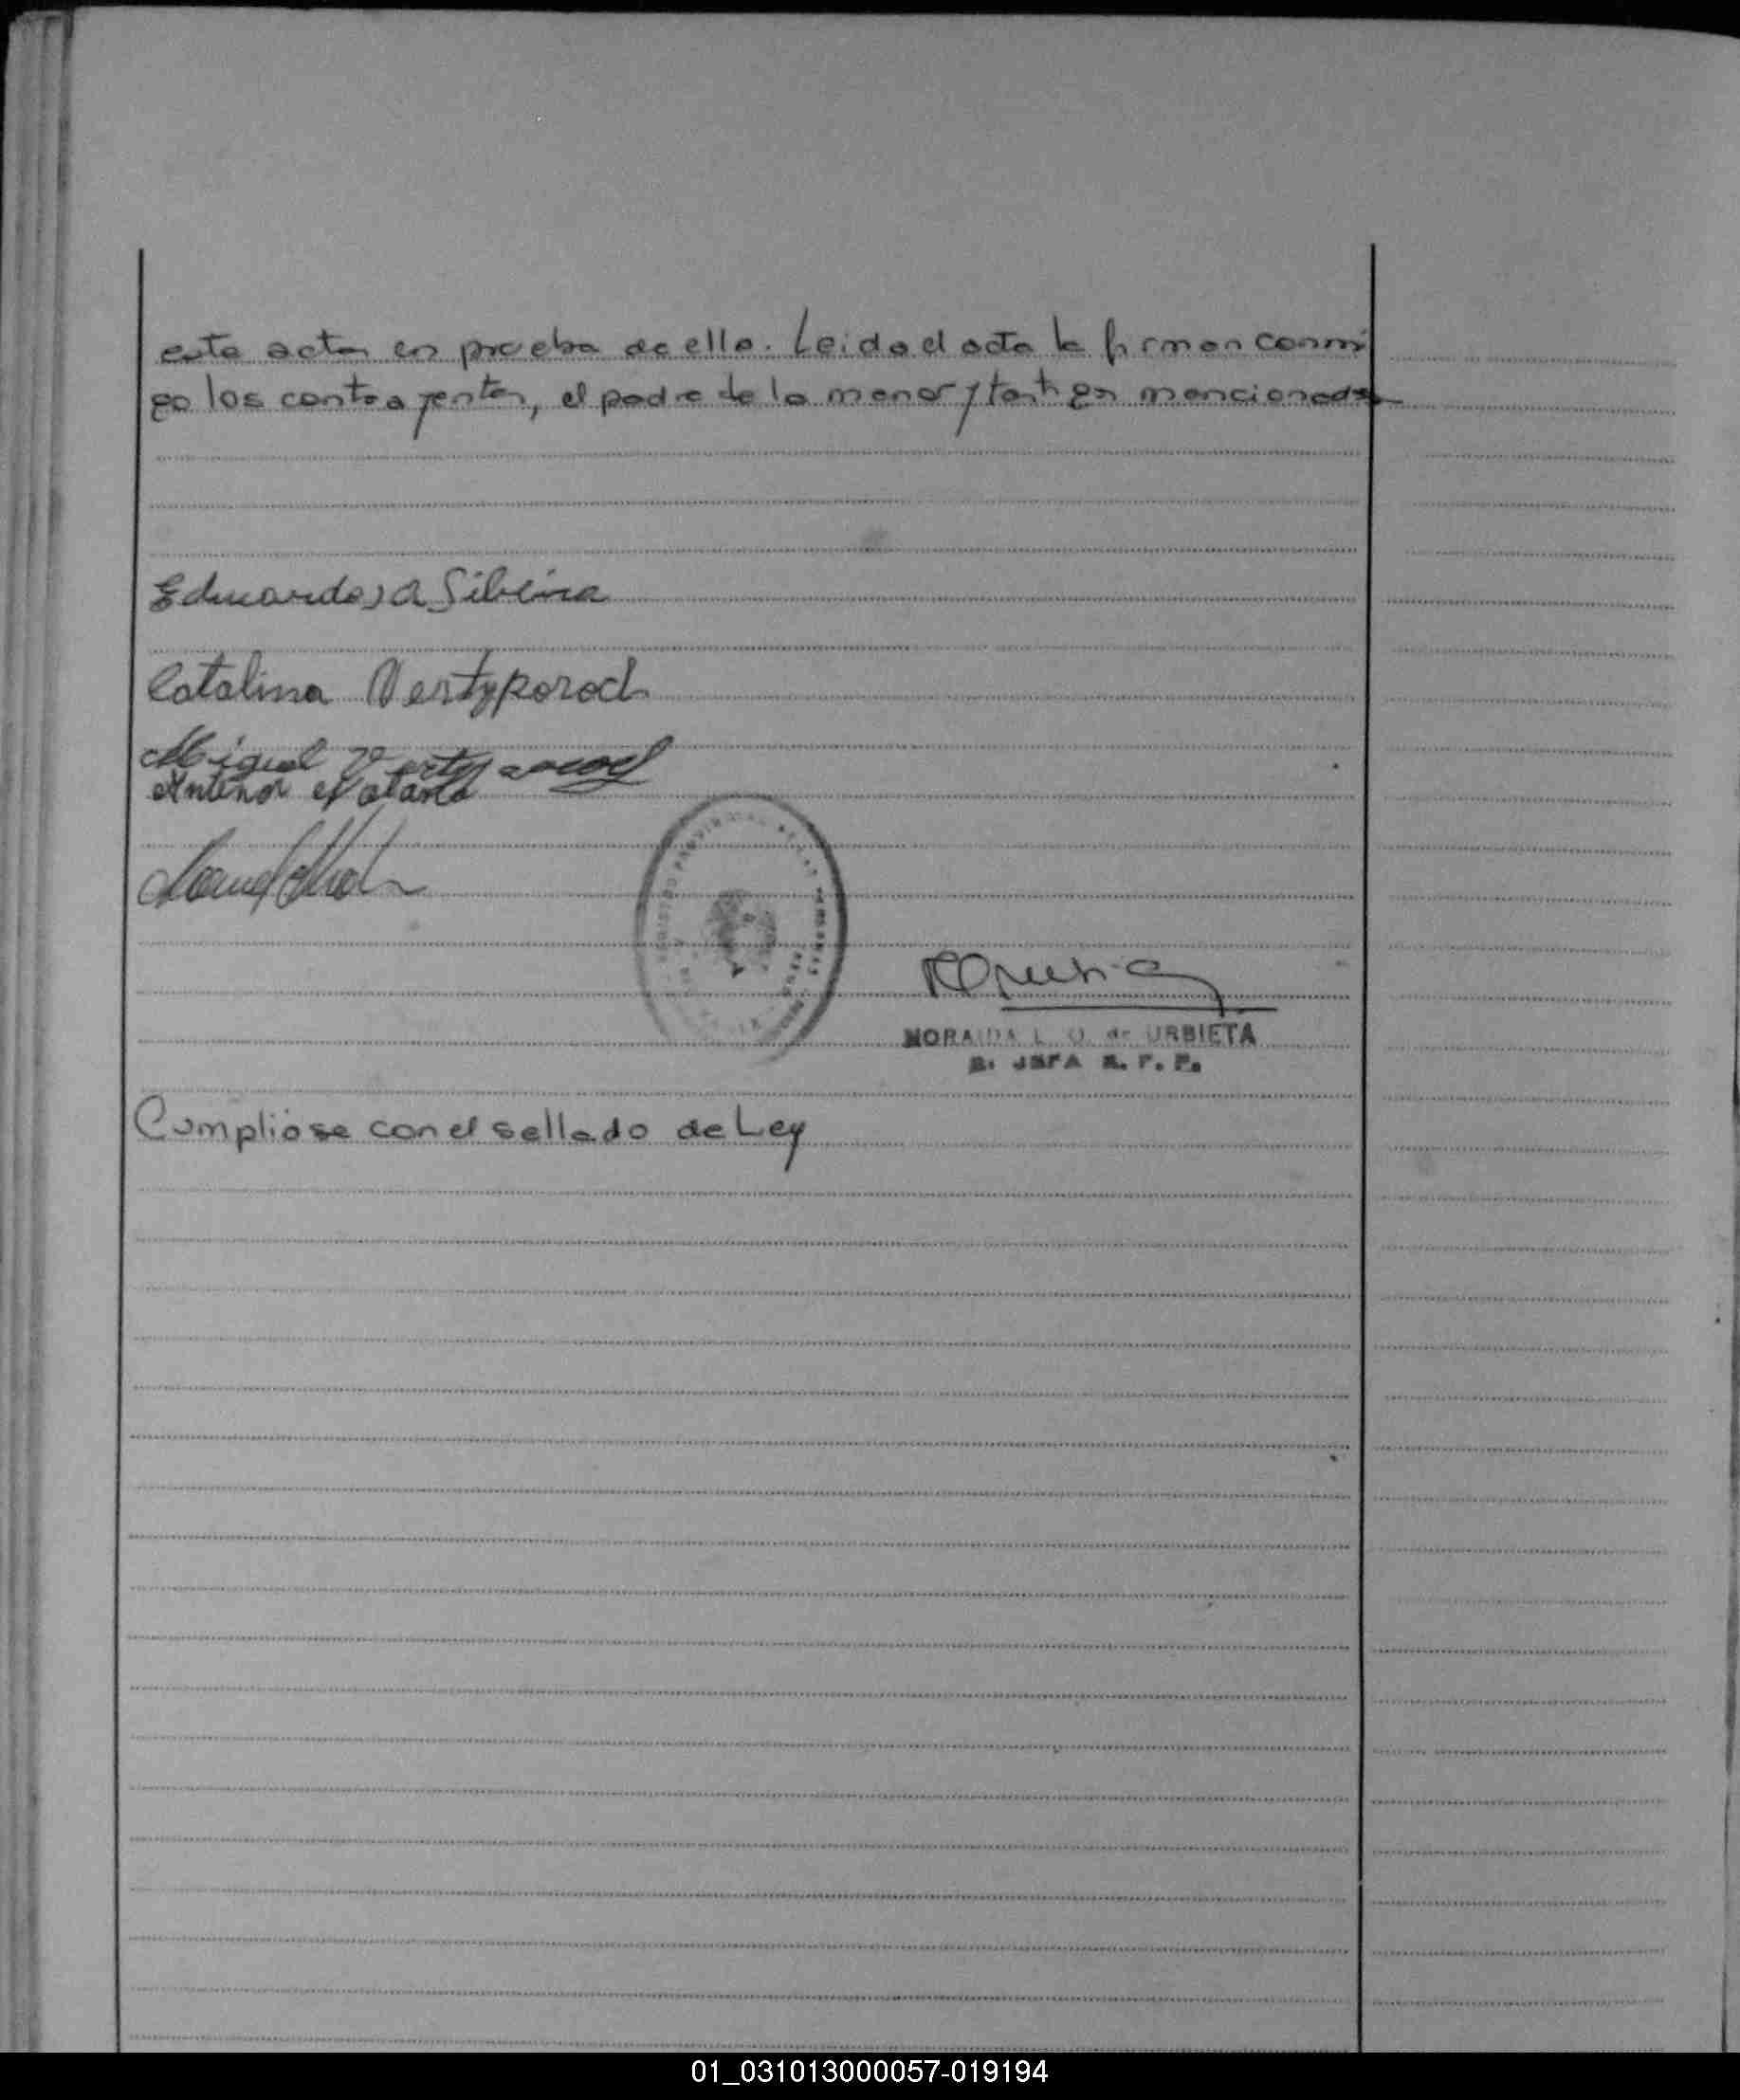 este acta en prueba de ello. Leida el acta la firman conmi
go los contrayentes, el padre de la menor y testigos mencionados
Eduardo A Silveira
Catalina Vertyporoch
Miguel
Antenor
NORAIDA L. O. de URBIETA
Cumplióse con el sellado de Ley
01_031013000057-019194